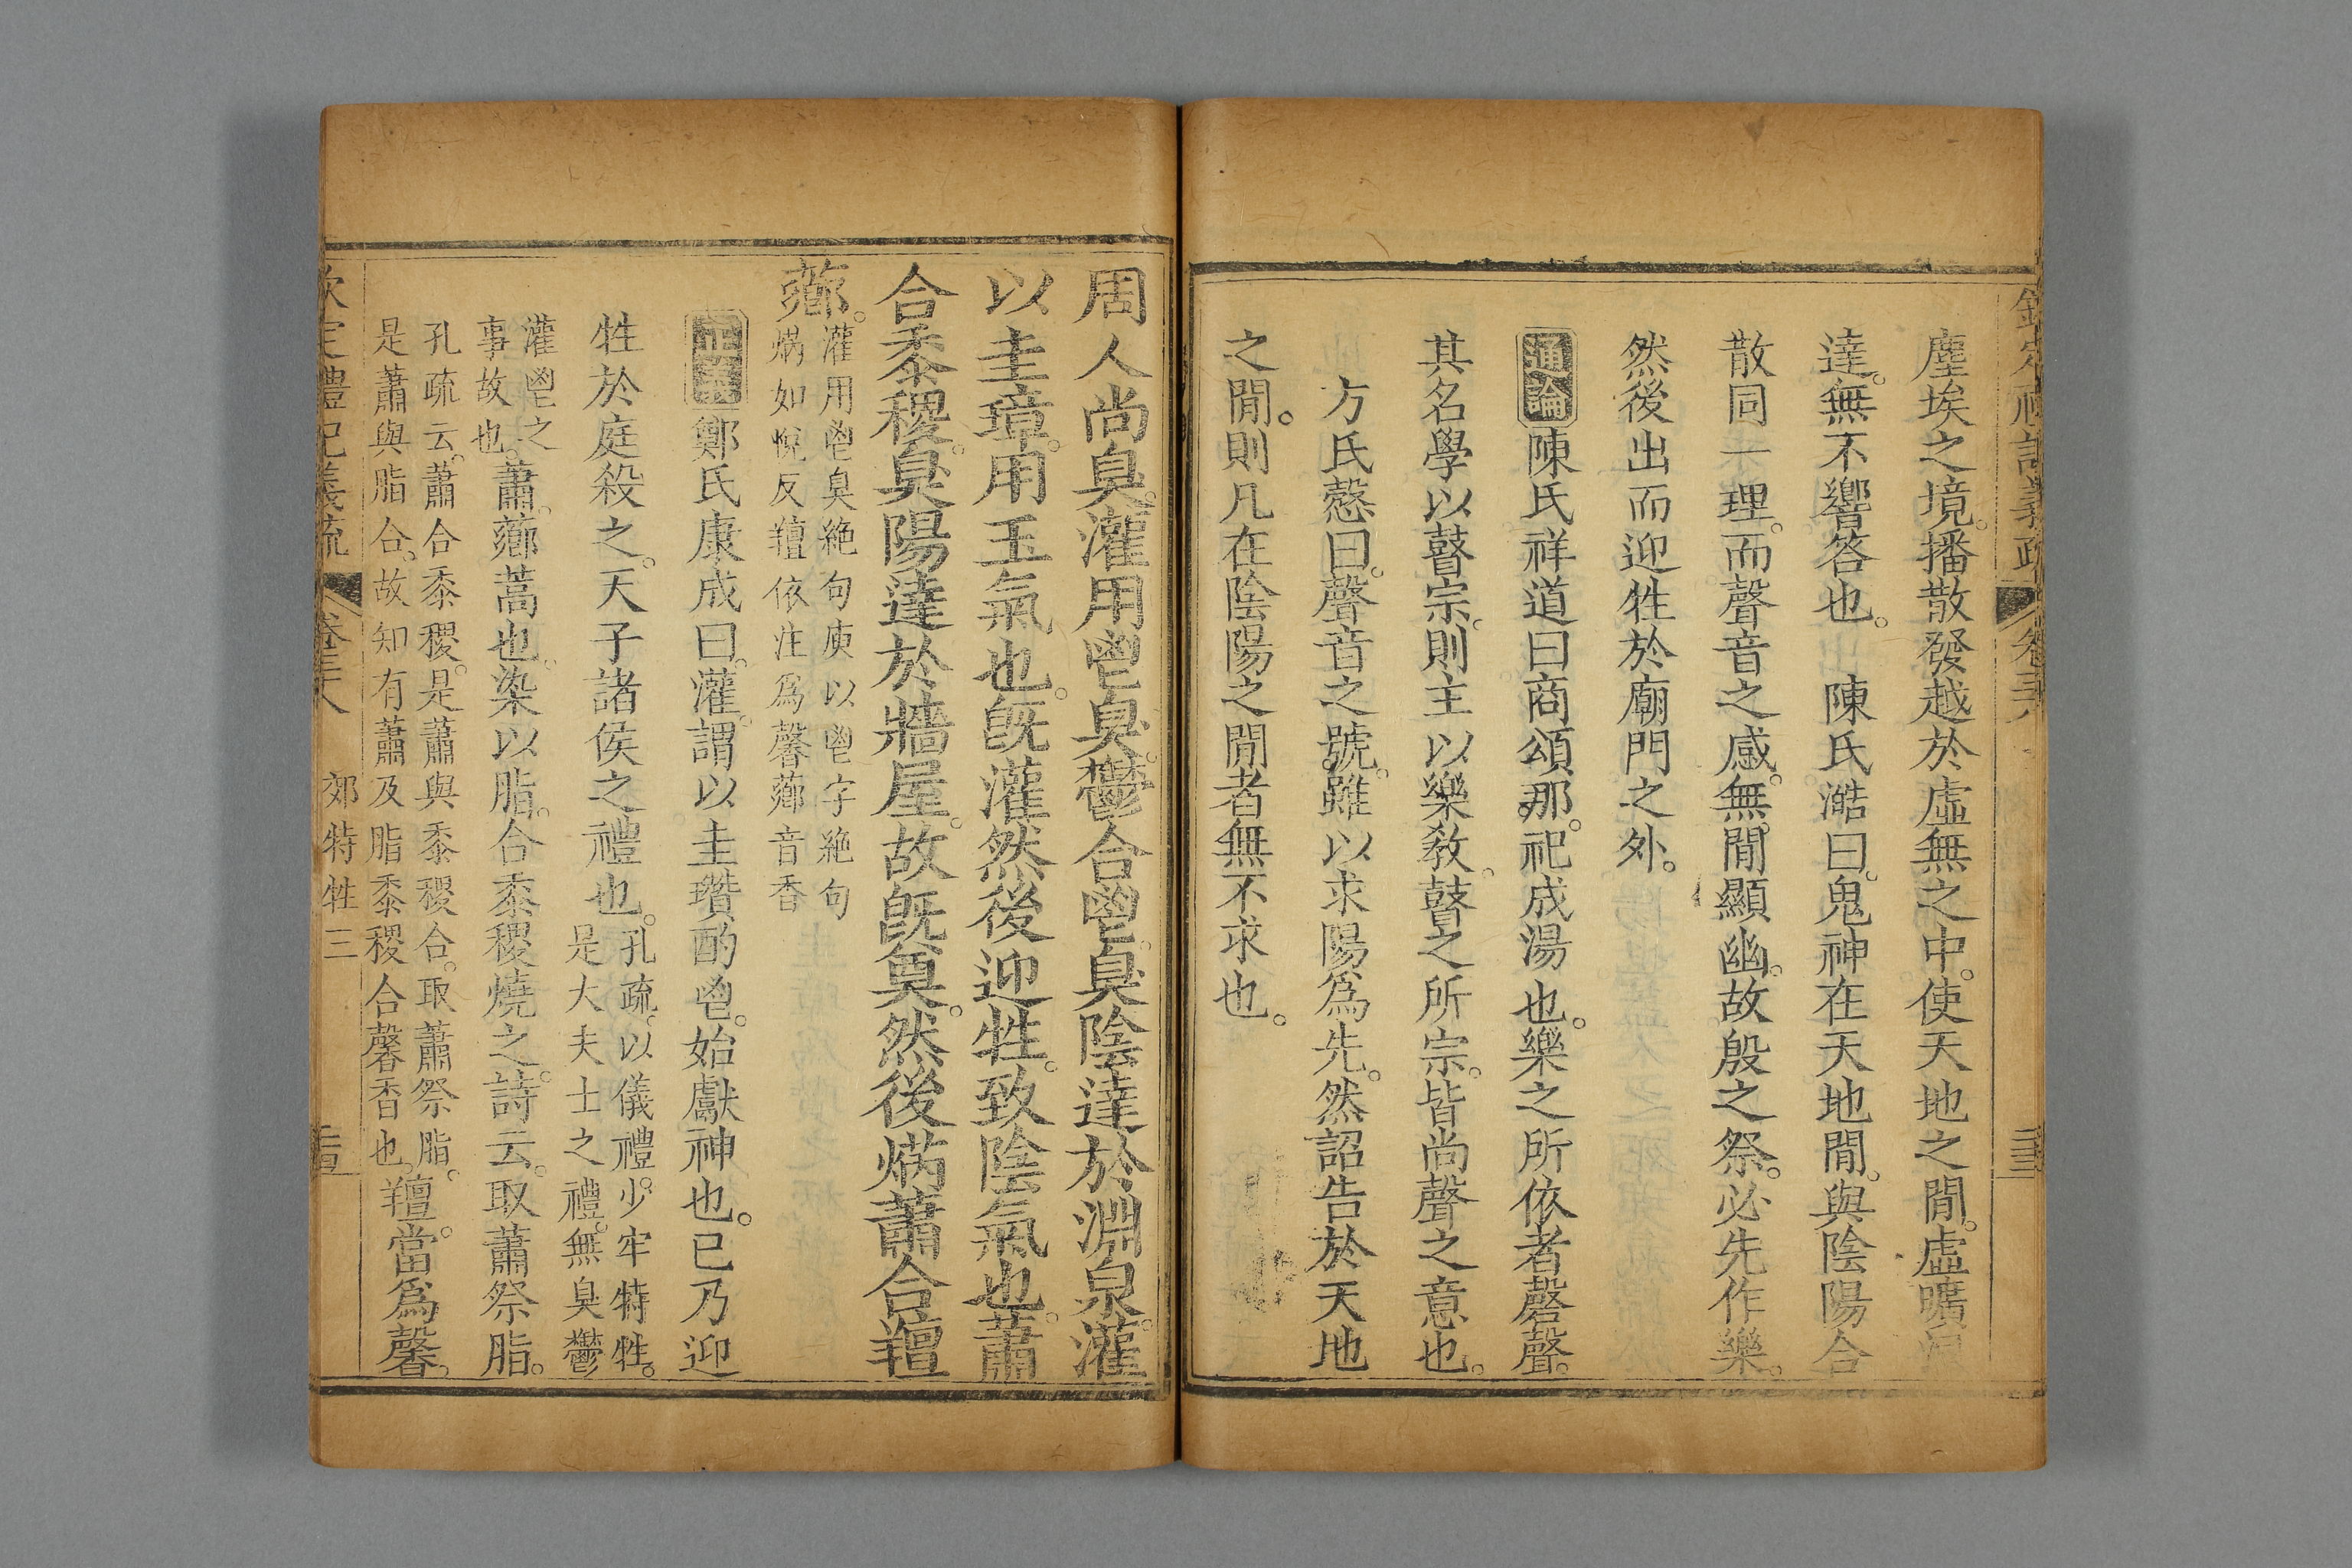 塵埃之境。播散發越於虛無之中。使天地之閒。虛曠
達。無不響答也。 陳氏澔曰。鬼神在天地閒。與陰陽合
散同一理。而聲音之感。無閒顯幽。故殷之祭。必先作樂。
然後出而迎牲於廟門之外。
通論 陳氏祥道曰商頌那。祀成湯也。樂之所依者磬聲。
其名學以瞽宗。則主以樂教。瞽之所宗。皆尚聲之意也。
方氏慤曰。聲音之號。雖以求陽為先。然詔告於天地
之閒。則凡在陰陽之閒者無不求也。
周人尚臭。灌用鬯臭。鬱合鬯。臭陰達於淵泉。灌
以圭璋。用玉氣也。旣灌然後迎牲。致陰氣也。蕭
合黍稷。臭陽達於牆屋。故旣奠。然後焫蕭合羶
薌。
灌用鬯臭絶句庾以鬯字絶句
焫如悅反羶依注爲馨薌音香
正義 鄭氏康成曰。灌。謂以圭瓚酌鬯。始獻神也。已乃迎
牲於庭殺之。天子諸侯之禮也。
孔疏。以儀禮少。牢特牲。
是大夫士之禮。無臭鬱
灌鬯之
事故也。
蕭。薌蒿也。染以脂。合黍稷燒之。詩云。取蕭祭脂。
孔疏云。蕭合黍稷。是蕭與黍稷合。取蕭祭脂。
是蕭與脂合。故知有蕭及脂黍稷合馨香也。
羶。當爲馨。
郊特牲三